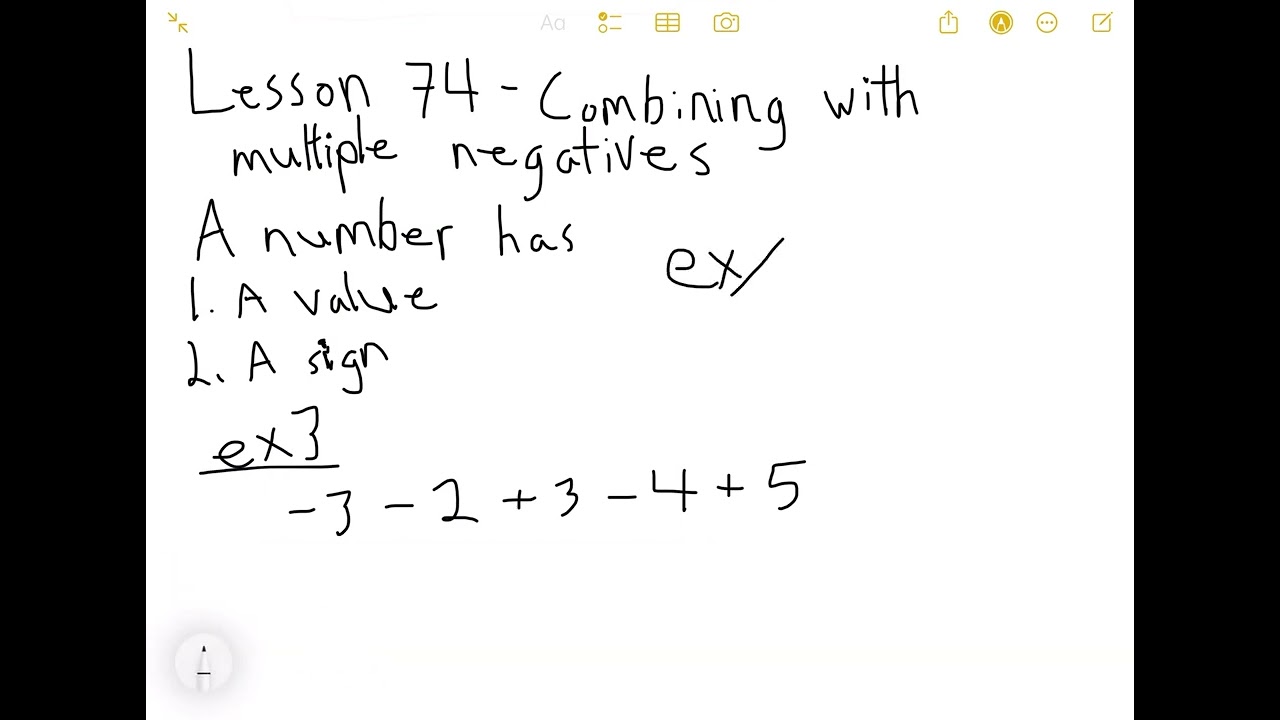 Aa
Lesson 74 - Combining with
multiple negatives
A number has
ex/
1. A value
2. A sign
ex 3
-3 - 2 + 3 - 4 + 5